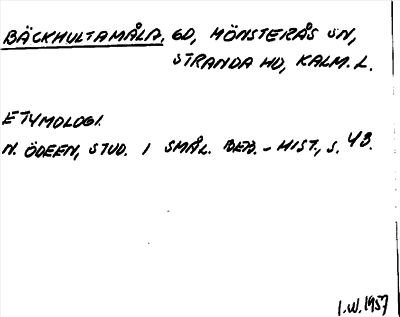 BÄCKHULTAMÅLA, GD, MÖNSTERÅS SN,
STRANDA HD, KALM. L.
ETYMOLOGI.
N. ÖDEEN, STUD. I SMÅL. BEB.-HIST., S. 43.
I.W. 1957